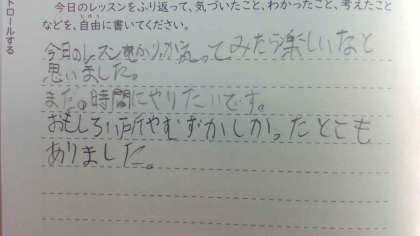 トロールする
今日のレッスンをふり返って、気づいたこと、わかったこと、考えたこと
などを、自由に書いてください。
今日のレッスンをふりかえってみたら楽しいなと
思いました。
また。時間にやりたいです。
おもしろい所やむずかしかったところも
ありました。